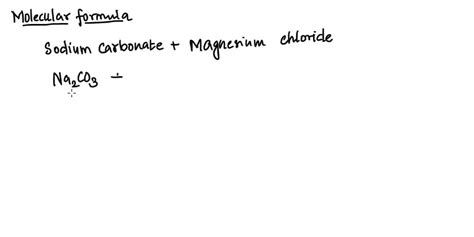 Molecular formula
Sodium carbonate + Magnesium chloride
Na₂CO₃ +